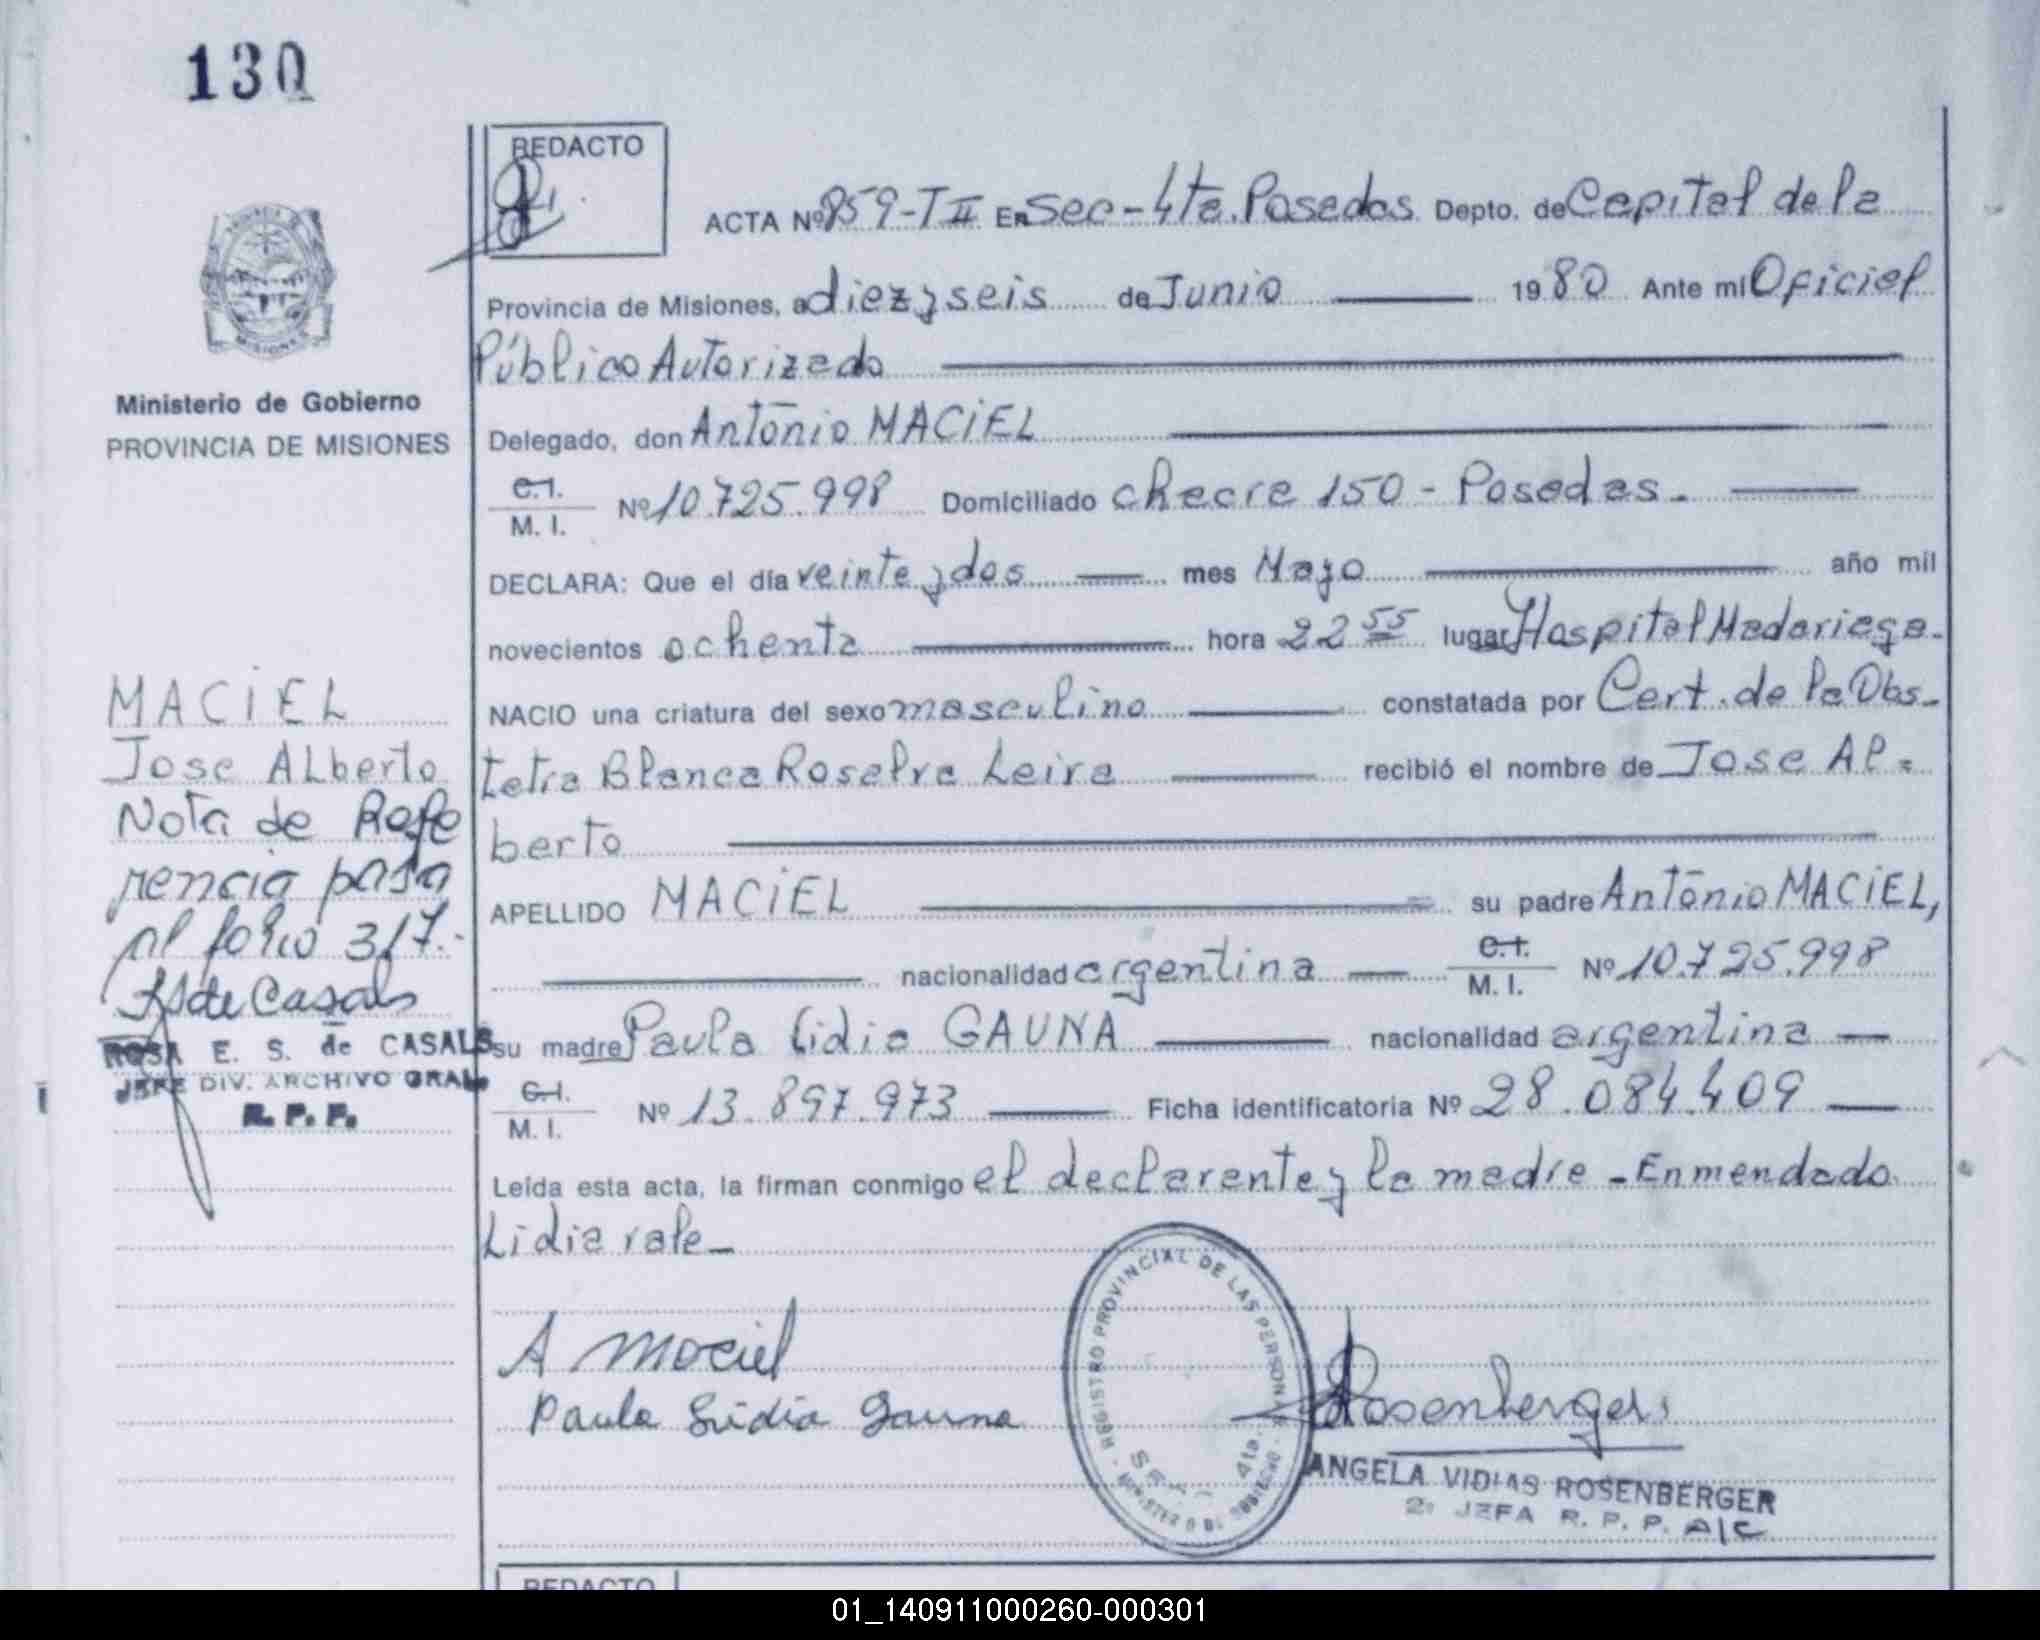 130
REDACTO
ACTA Nº 859-T II En Sec-4ta. Posadas Depto. de Capital de la
Provincia de Misiones, a diez y seis de Junio 1980 Ante mí Oficial
Público Autorizado
Delegado, don Antonio MACIEL
C.I.
M. I. Nº 10.725.998 Domiciliado chacra 150 - Posadas.
DECLARA: Que el día veinte y dos mes Mayo año mil
novecientos ochenta hora 22 55 lugar Hospital Madariaga-
NACIO una criatura del sexo masculino constatada por Cert. de la Obs-
tetra Blanca Rosalva Leiva recibió el nombre de Jose Al=
berto
APELLIDO MACIEL su padre Antonio MACIEL,
nacionalidad argentina C.I. M. I. Nº 10.725.998
su madre Paula Lidia GAUNA nacionalidad argentina
C.I.
M. I. Nº 13.897.973 Ficha identificatoria Nº 28.084.409
Leída esta acta, la firman conmigo el declarante y la madre - Enmendado
Lidia vale-
A Maciel
Paula Lidia Gauna
Rosenberger
REGISTRO PROVINCIAL DE LAS PERSONAS
4ta.
ANGELA VIDIAS ROSENBERGER
2º JEFA R. P. P. A/C
REDACTO
MISIONES
Ministerio de Gobierno
PROVINCIA DE MISIONES
MACIEL
Jose ALberto
Nota de Refe
rencia pasa
al folio 317.-
de Casals
ROSA E. S. de CASALS
JEFE DIV. ARCHIVO GRAL.
R. P. P.
01_140911000260-000301